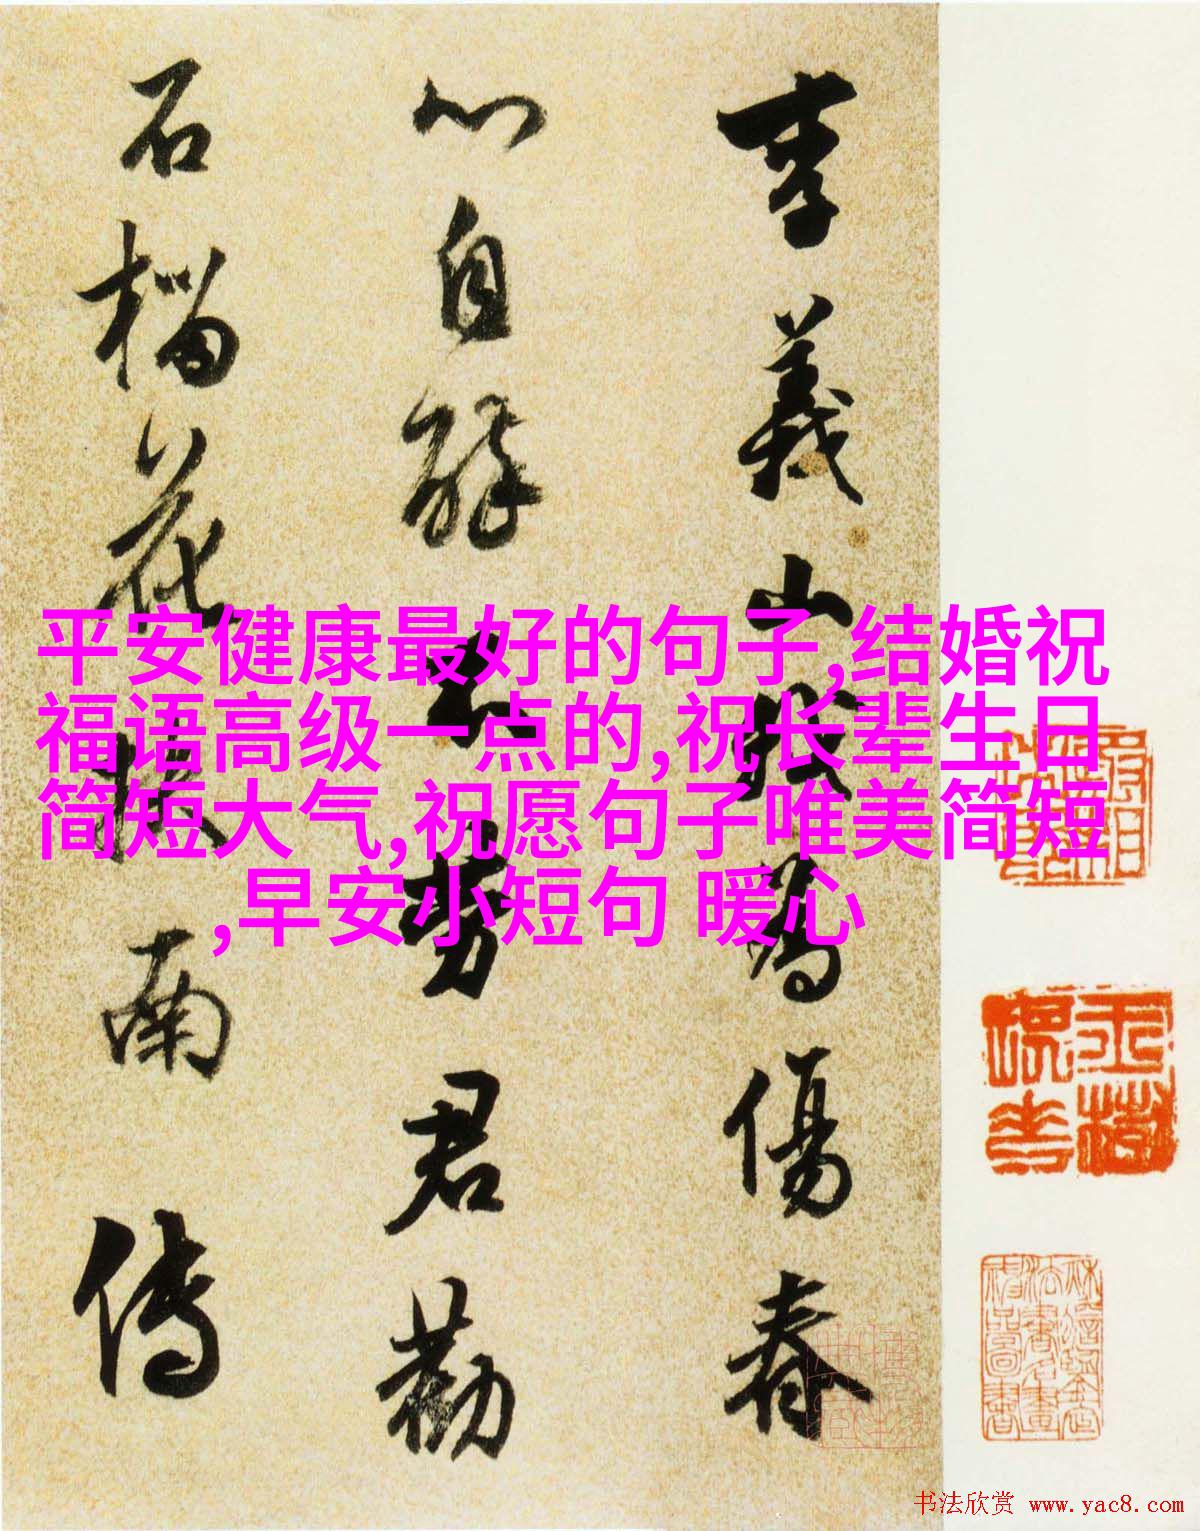 李義山我為傷春
心自醉不勞君勸
石榴花傳
平安健康最好的句子,结婚祝
福语高级一点的,祝长辈生日
简短大气,祝愿句子唯美简短
,早安小短句 暖心
书法欣赏 www.yac8.com